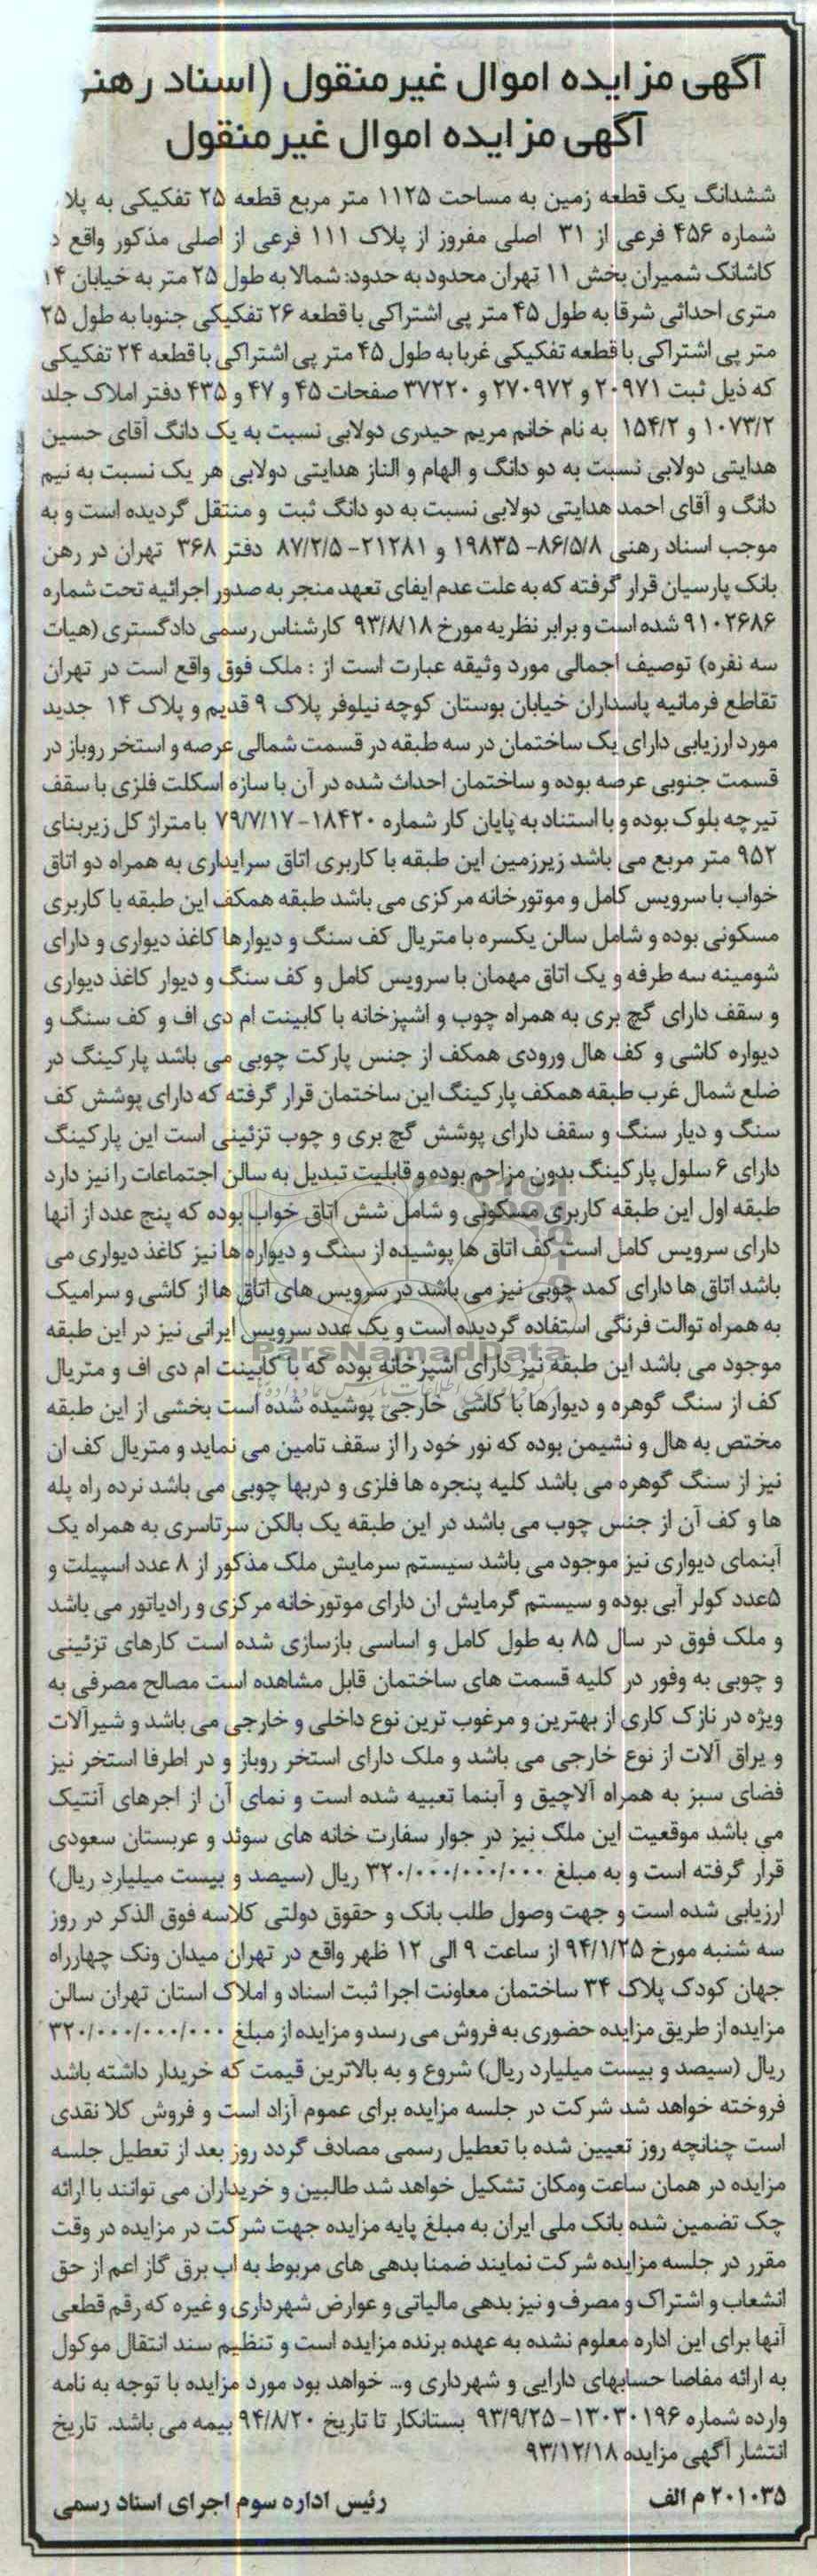 آگهی مزایده اموال غیرمنقول (اسناد رهنی
آگهی مزایده اموال غیرمنقول
ششدانگ یک قطعه زمین به مساحت ۱۱۲۵ متر مربع قطعه ۲۵ تفکیکی به پلا
شماره ۴۵۶ فرعی از ۳۱ اصلی مفروز از پلاک ۱۱۱ فرعی از اصلی مذکور واقع د
کاشانک شمیران بخش ۱۱ تهران محدود به حدود: شمالا به طول ۲۵ متر به خیابان ۱۴
متری احداثی شرقا به طول ۴۵ متر پی اشتراکی با قطعه ۲۶ تفکیکی جنوبا به طول ۲۵
متر پی اشتراکی با قطعه تفکیکی غربا به طول ۴۵ متر پی اشتراکی با قطعه ۲۴ تفکیکی
که ذیل ثبت ۲۰۹۷۱ و ۲۷۰۹۷۲ و ۳۷۲۲۰ صفحات ۴۵ و ۴۷ و ۴۳۵ دفتر املاک جلد
۱۰۷۳/۲ و ۱۵۴/۲ به نام خانم مریم حیدری دولابی نسبت به یک دانگ آقای حسین
هدایتی دولابی نسبت به دو دانگ و الهام و الناز هدایتی دولابی هر یک نسبت به نیم
دانگ و آقای احمد هدایتی دولابی نسبت به دو دانگ ثبت و منتقل گردیده است و به
موجب اسناد رهنی ۸۶/۵/۸- ۱۹۸۳۵ و ۲۱۲۸۱- ۸۷/۲/۵ دفتر ۳۶۸ تهران در رهن
بانک پارسیان قرار گرفته که به علت عدم ایفای تعهد منجر به صدور اجرائیه تحت شماره
۹۱۰۲۶۸۶ شده است و برابر نظریه مورخ ۹۳/۸/۱۸ کارشناس رسمی دادگستری (هیات
سه نفره) توصیف اجمالی مورد وثیقه عبارت است از : ملک فوق واقع است در تهران
تقاطع فرمانیه پاسداران خیابان بوستان کوچه نیلوفر پلاک ۹ قدیم و پلاک ۱۴ جدید
مورد ارزیابی دارای یک ساختمان در سه طبقه در قسمت شمالی عرصه و استخر روباز در
قسمت جنوبی عرصه بوده و ساختمان احداث شده در آن با سازه اسکلت فلزی با سقف
تیرچه بلوک بوده و با استناد به پایان کار شماره ۱۸۴۲۰- ۷۹/۷/۱۷ با متراژ کل زیربنای
۹۵۲ متر مربع می باشد زیرزمین این طبقه با کاربری اتاق سرایداری به همراه دو اتاق
خواب با سرویس کامل و موتورخانه مرکزی می باشد طبقه همکف این طبقه با کاربری
مسکونی بوده و شامل سالن یکسره با متریال کف سنگ و دیوارها کاغذ دیواری و دارای
شومینه سه طرفه و یک اتاق مهمان با سرویس کامل و کف سنگ و دیوار کاغذ دیواری
و سقف دارای گچ بری به همراه چوب و اشپزخانه با کابینت ام دی اف و کف سنگ و
دیواره کاشی و کف هال ورودی همکف از جنس پارکت چوبی می باشد پارکینگ در
ضلع شمال غرب طبقه همکف پارکینگ این ساختمان قرار گرفته که دارای پوشش کف
سنگ و دیار سنگ و سقف دارای پوشش گچ بری و چوب تزئینی است این پارکینگ
دارای ۶ سلول پارکینگ بدون مزاحم بوده و قابلیت تبدیل به سالن اجتماعات را نیز دارد
طبقه اول این طبقه کاربری مسکونی و شامل شش اتاق خواب بوده که پنج عدد از آنها
دارای سرویس کامل است کف اتاق ها پوشیده از سنگ و دیواره ها نیز کاغذ دیواری می
باشد اتاق ها دارای کمد چوبی نیز می باشد در سرویس های اتاق ها از کاشی و سرامیک
به همراه توالت فرنگی استفاده گردیده است و یک عدد سرویس ایرانی نیز در این طبقه
موجود می باشد این طبقه نیز دارای اشپزخانه بوده که با کابینت ام دی اف و متریال
کف از سنگ گوهره و دیوارها با کاشی خارجی پوشیده شده است بخشی از این طبقه
مختص به هال و نشیمن بوده که نور خود را از سقف تامین می نماید و متریال کف ان
نیز از سنگ گوهره می باشد کلیه پنجره ها فلزی و دربها چوبی می باشد نرده راه پله
ها و کف آن از جنس چوب می باشد در این طبقه یک بالکن سرتاسری به همراه یک
آبنمای دیواری نیز موجود می باشد سیستم سرمایش ملک مذکور از ۸ عدد اسپیلت و
۵عدد کولر آبی بوده و سیستم گرمایش ان دارای موتورخانه مرکزی و رادیاتور می باشد
و ملک فوق در سال ۸۵ به طول کامل و اساسی بازسازی شده است کارهای تزئینی
و چوبی به وفور در کلیه قسمت های ساختمان قابل مشاهده است مصالح مصرفی به
ویژه در نازک کاری از بهترین و مرغوب ترین نوع داخلی و خارجی می باشد و شیرآلات
و یراق آلات از نوع خارجی می باشد و ملک دارای استخر روباز و در اطرفا استخر نیز
فضای سبز به همراه آلاچیق و آبنما تعبیه شده است و نمای آن از اجرهای آنتیک
می باشد موقعیت این ملک نیز در جوار سفارت خانه های سوئد و عربستان سعودی
قرار گرفته است و به مبلغ ۳۲۰/۰۰۰/۰۰۰/۰۰۰ ریال (سیصد و بیست میلیارد ریال)
ارزیابی شده است و جهت وصول طلب بانک و حقوق دولتی کلاسه فوق الذکر در روز
سه شنبه مورخ ۹۴/۱/۲۵ از ساعت ۹ الی ۱۲ ظهر واقع در تهران میدان ونک چهارراه
جهان کودک پلاک ۳۴ ساختمان معاونت اجرا ثبت اسناد و املاک استان تهران سالن
مزایده از طریق مزایده حضوری به فروش می رسد و مزایده از مبلغ ۳۲۰/۰۰۰/۰۰۰/۰۰۰
ریال (سیصد و بیست میلیارد ریال) شروع و به بالاترین قیمت که خریدار داشته باشد
فروخته خواهد شد شرکت در جلسه مزایده برای عموم آزاد است و فروش کلا نقدی
است چنانچه روز تعیین شده با تعطیل رسمی مصادف گردد روز بعد از تعطیل جلسه
مزایده در همان ساعت ومکان تشکیل خواهد شد طالبین و خریداران می توانند با ارائه
چک تضمین شده بانک ملی ایران به مبلغ پایه مزایده جهت شرکت در مزایده در وقت
مقرر در جلسه مزایده شرکت نمایند ضمنا بدهی های مربوط به اب برق گاز اعم از حق
انشعاب و اشتراک و مصرف و نیز بدهی مالیاتی و عوارض شهرداری و غیره که رقم قطعی
آنها برای این اداره معلوم نشده به عهده برنده مزایده است و تنظیم سند انتقال موکول
به ارائه مفاصا حسابهای دارایی و شهرداری و... خواهد بود مورد مزایده با توجه به نامه
وارده شماره ۱۳۰۳۰۱۹۶- ۹۳/۹/۲۵ بستانکار تا تاریخ ۹۴/۸/۲۰ بیمه می باشد. تاریخ
انتشار آگهی مزایده ۹۳/۱۲/۱۸
۲۰۱۰۳۵ م الف
رئیس اداره سوم اجرای اسناد رسمی
ParsNamadData